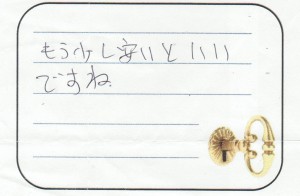 もう少し安いといい
ですね